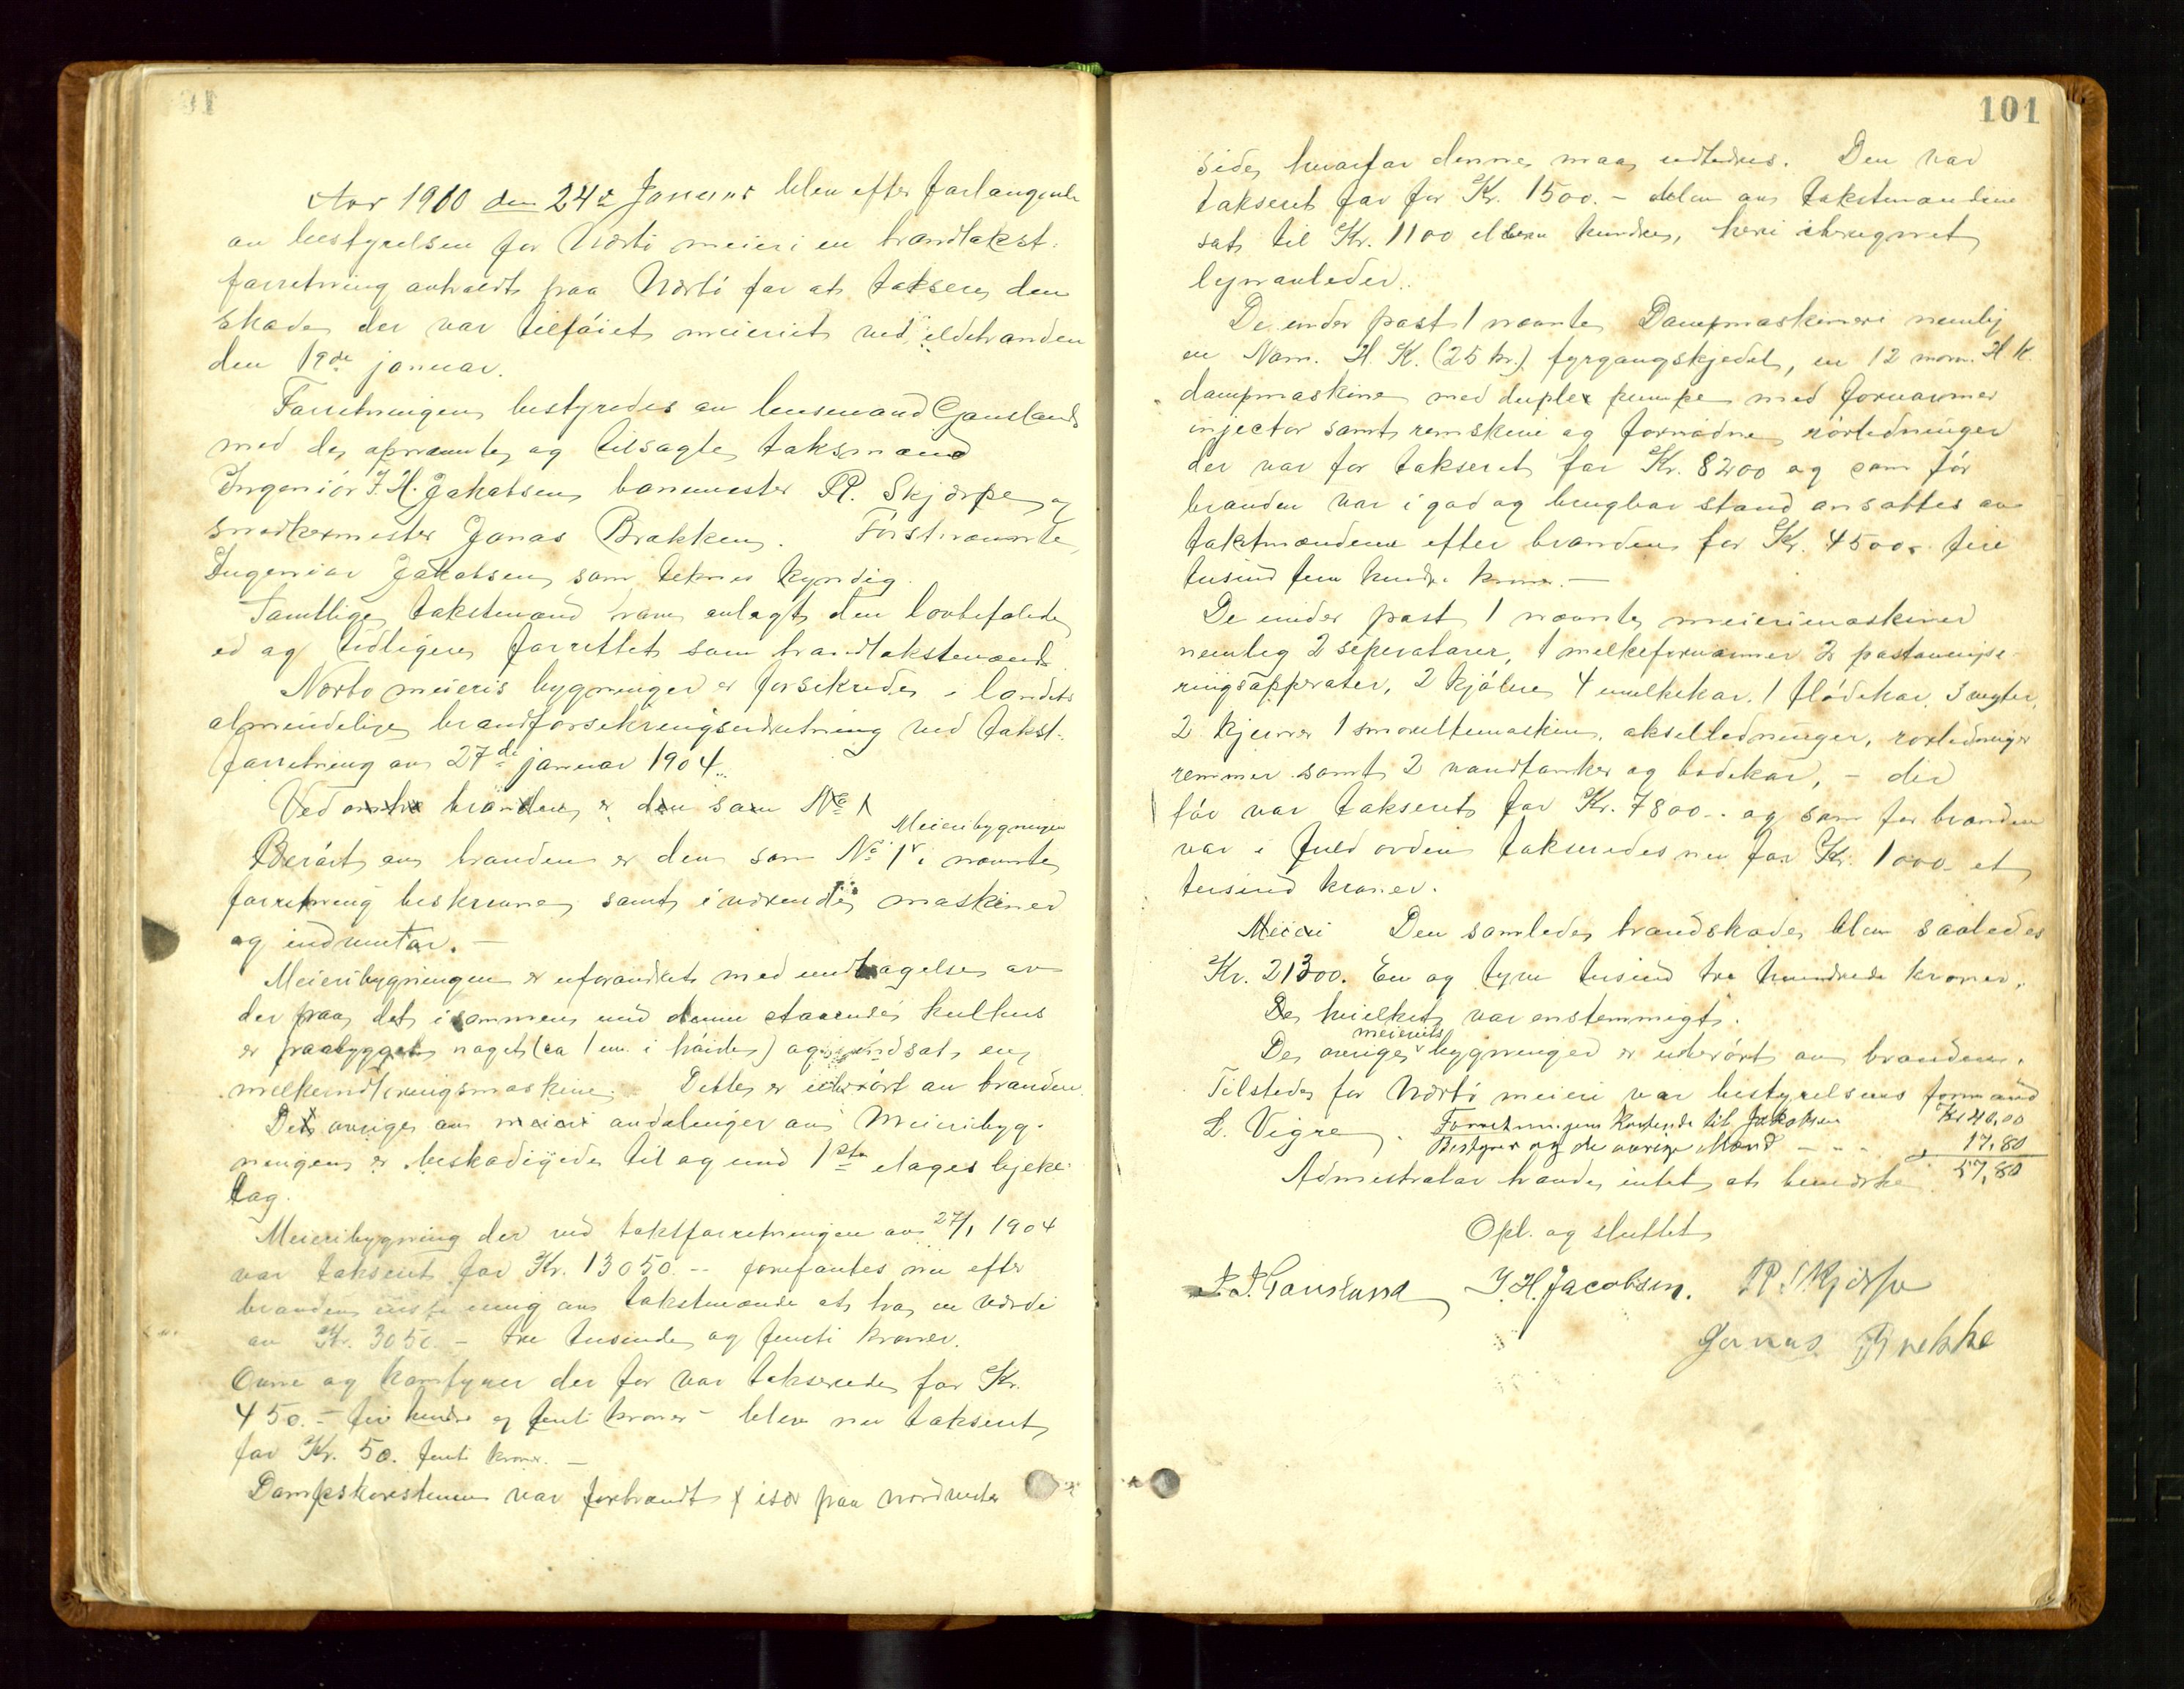 Aar 1910 den 24de Januar blev efter forlangende
av bestyrelsen for Nærbö meieri en brandtakst-
forretning avholdt paa Nærbö for at taksere den
skade der var tilföiet meieriet ved ildebranden
den 19de januar.
Forretningen bestyredes av lensmand Gausland
med de opnævnte og tilsagte taksmænd
Ingeniör J. H. Jakobsen, banemester P. Skjærpe og
snedkermester Jonas Brekken. Förstnævnte
Ingeniör Jakobsen som teknisk kyndig.
Samtlige takstmænd have avlagt den lovbefalede
ed og tidligere forrettet som brandtakstmænd.
Nærbö meieris bygninger er forsikrede i landets
almindelige brandforsikringsindretning ved takst-
forretning av 27de januar 1904.
Ved branden er den som No 1
Berört av branden er den som No 1 Meieribygningen i nævnte
forretning beskrevne samt iværende maskiner
og indventar. —
Meieribygningen er uforandret med undtagelse av
der paa det isammen med denne staaende kulhus
er paabygget noget (ca 1 m. i höide) og indsat en
melkeindtiningsmaskine. Dette er uberört av branden.
De övrige av meieri avdelinger av Meieribyg-
ningen er beskadigede til og med 1ste etages bjelke-
lag.
Meieribygning der ved takstforretningen av 27/1 1904
var taksert for Kr. 13050 -- forefantes nu efter
branden av takstmændene at ha en værdi
av Kr. 3050 – tre tusinde og femti kroner.
Ovne og komfyrer der för var takserede for Kr.
450. – fire hundre og femti kroner – blev nu taksert
for Kr. 50. femti kroner. —
Dampskorstenen var forbrændt især paa nordvestre
101
side, hvorfor denne maa udbedres. Den var
takseret för for Kr. 1500. – blev av takstmændene
sat til Kr. 1100 elleve hundre, heri iberegnet
lynavleder.
De under post 1 nævnte Dampmaskineri nemlig
en Nom. H. K. (25 kv.) fyrgangskjedel, en 12 nom. H K.
dampmaskine med duplex pumpe med forvarmer
injector samt remskive og fornødne rörledninger
der var för takseret for Kr. 8200 og som för
branden var i god og brugbar stand ansattes av
takstmændene efter branden for Kr. 4500. fire
tusind fem hundre kroner. —
De under post 1 nævnte meierimaskiner
nemlig 2 seperatorer, 1 melkeforvarmer 2 pastourise-
ringsapperater, 2 kjölere 4 melkekar, 1 flödekar, 3 vegter,
2 kjerner 1 smöreltemaskine, akselledninger, rörledninger
remmer samt 2 vandtanker og badekar, – der
för var takseret for Kr. 7800.- og som för branden
var i fuld orden takseredes nu for Kr. 1000 et
tusind kroner.
Meieri Den samlede brandskade blev saaledes
Kr. 21300. En og tyve tusind tre hundrede kroner.
De hvilket var enstemmigt.
De övrige meieriets bygninger er uberört av branden.
Tilstede for Nærbö meieri var bestyrelsens formand
L. Vigre. Forretningen kostende til Jakobsen Kr 40,00
Bestyrer og de övrige Mænd - - - 17,80
57,80
Admistrator havde intet at bemerke.
Opl. og sluttet
Gausland J. H. Jacobsen. P Skjærpe
Jonas Brekke